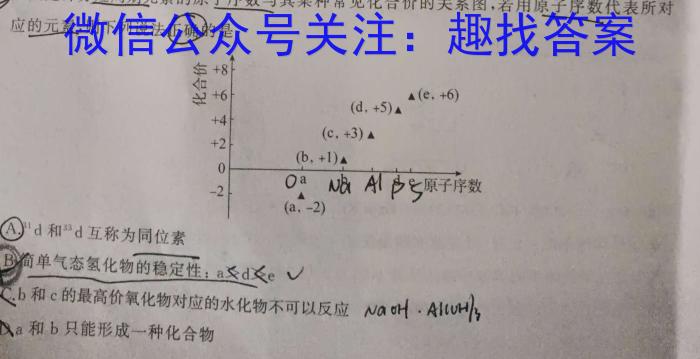 素的原子序数与其某种常见化合价的关系图,若用原子序数代表所对
应的元素
微信公众号关注：趣找答案
化合价
+8
+6
+4
+2
0
-2
(e, +6)
(d, +5)
(c, +3)
(b, +1)
(a, -2)
a
O Na Al P S
原子序数
A. ³¹d 和³³d 互称为同位素
B 简单气态氢化物的稳定性：a<d<e
C. b 和 c 的最高价氧化物对应的水化物不可以反应 NaOH · Al(OH)3
D. a 和 b 只能形成一种化合物